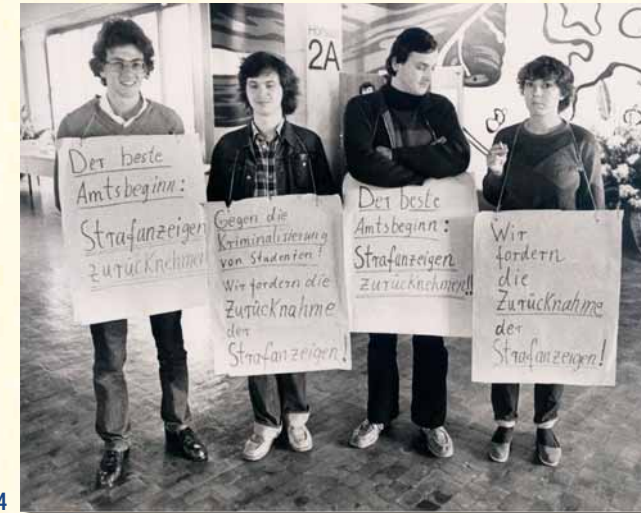 2A
Der beste
Amtsbeginn:
Strafanzeigen
zurücknehmen
Gegen die
Kriminalisierung
von Studenten!
Wir fordern die
Zurücknahme
der
Strafanzeigen!
Der beste
Amtsbeginn:
Strafanzeigen
zurücknehmen!!
Wir
fordern
die
Zurücknahme
der
Strafanzeigen!
4